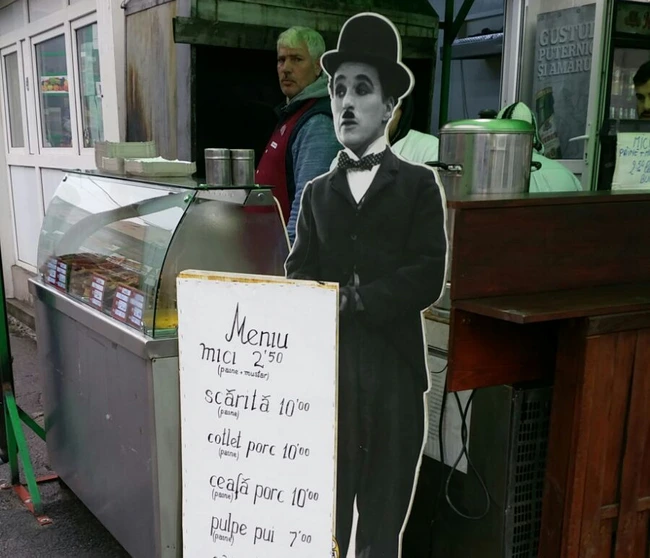 GUSTUL
PUTERNIC
ȘI AMĂRUI
Meniu
mici 2'50
(paine + mustar)
scăriță 10'00
(paine)
cotlet porc 10'00
(paine)
ceafă porc 10'00
(paine)
pulpe pui 7'00
(paine)
MICI
PAINE +